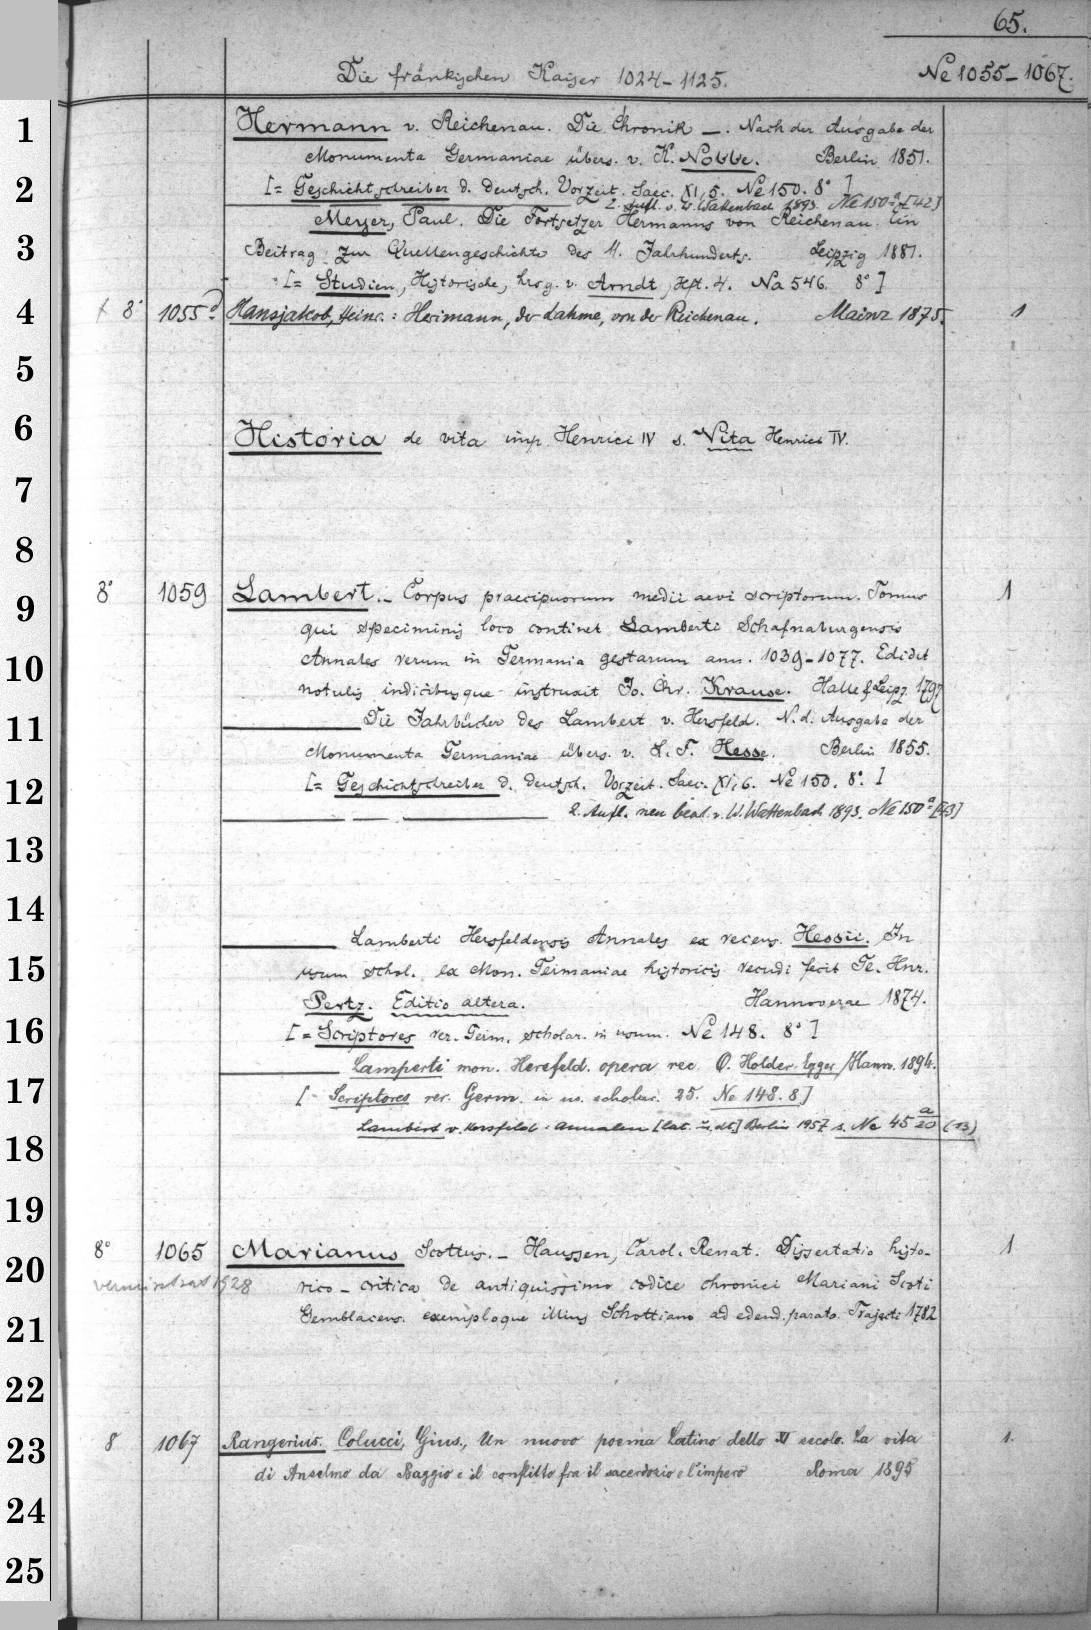 65.
Die fränkischen Kaiser 1024-1125. Ne 1055-1067.
1 Hermann v. Reichenau. Die Chronik —. Nach der Ausgabe der
Monumenta Germaniae übers. v. K. Nobbe. Berlin 1851.
2 [= Geschichtschreiber d. deutsch. Vorzeit. Saec. XI, 5. Ne 150. 8° ]
2. Aufl. v. W. Wattenbach 1893. Ne 150 a [42]
Meyer, Paul. Die Fortsetzer Hermanns von Reichenau. Ein
3 Beitrag zur Quellengeschichte des 11. Jahrhunderts. Leipzig 1881.
[= Studien, Historische, hrsg. v. Arndt, Hft. 4. Na 546 8° ]
4 8° 1055 Hansjakob, Heinr.: Herimann, der Lahme, von der Reichenau. Mainz 1875. 1
5
6 Historia de vita imp. Henrici IV s. Vita Henrici IV.
7
8
9 8° 1059 Lambert. – Corpus praecipuorum medii aevi scriptorum. Tomus 1
qui speciminis loco continet Lamberti Schafnaburgensis
10 Annales rerum in Germania gestarum ann. 1039-1077. Edidit
notulis indicibusque instruxit Jo. Chr. Krause. Halle & Leipz. 1797
11 Die Jahrbücher des Lambert v. Hersfeld. N. d. Ausgabe der
Monumenta Germaniae übers. v. L. F. Hesse. Berlin 1855.
12 [= Geschichtschreiber d. deutsch. Vorzeit. Saec. XI, 6. Ne 150. 8°. ]
2. Aufl. neu bearb. v. W. Wattenbach 1893. Ne 150 a [43]
13
14
Lamberti Hersfeldensis Annales ex recens. Hessii. In
15 usum schol. ex Mon. Germaniae historicis recudi fecit Ge. Hnr.
Pertz. Editio altera. Hannoverae 1874.
16 [= Scriptores rer. Germ. scholar. in usum. Ne 148. 8° ]
Lamperti mon. Hersfeld. opera rec. O. Holder-Egger Hann. 1894.
17 [= Scriptores rer. Germ. in us. scholar. 25. Ne 148. 8]
Lambert v. Hersfeld: Annalen [lat. u. dt] Berlin 1957 s. Ne 45 a/20 (13)
18
19
20 8° 1065 Marianus Scottus. – Haussen, Carol. Renat. Dissertatio histo- 1
1928 rico-critica de antiquissimo codice chronici Mariani Scoti
21 Gemblacens. exemploque illius Schottiano ad edend. parato. Trajecti 1782
22
23 8 1067 Rangerius. Colucci, Gius., Un nuovo poema latino dello XI secolo. La vita 1.
di Anselmo da Baggio e il conflitto fra il sacerdozio e l'impero Roma 1895
24
25